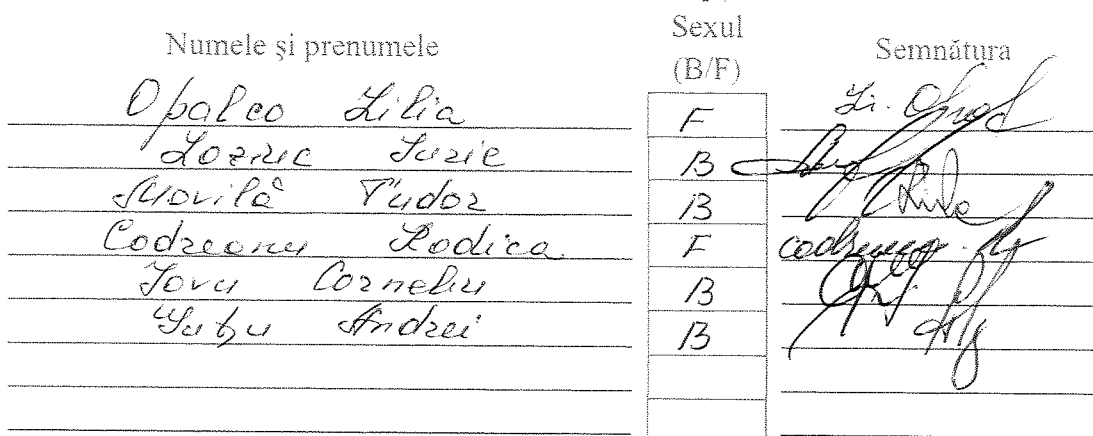 Numele și prenumele Sexul (B/F) Semnătura
Opalco Lilia F Li. Opal
Lozinc Iurie B
Movilă Tudor B
Codreanu Rodica F codreanu. R
Iovu Corneliu B
Andrei B